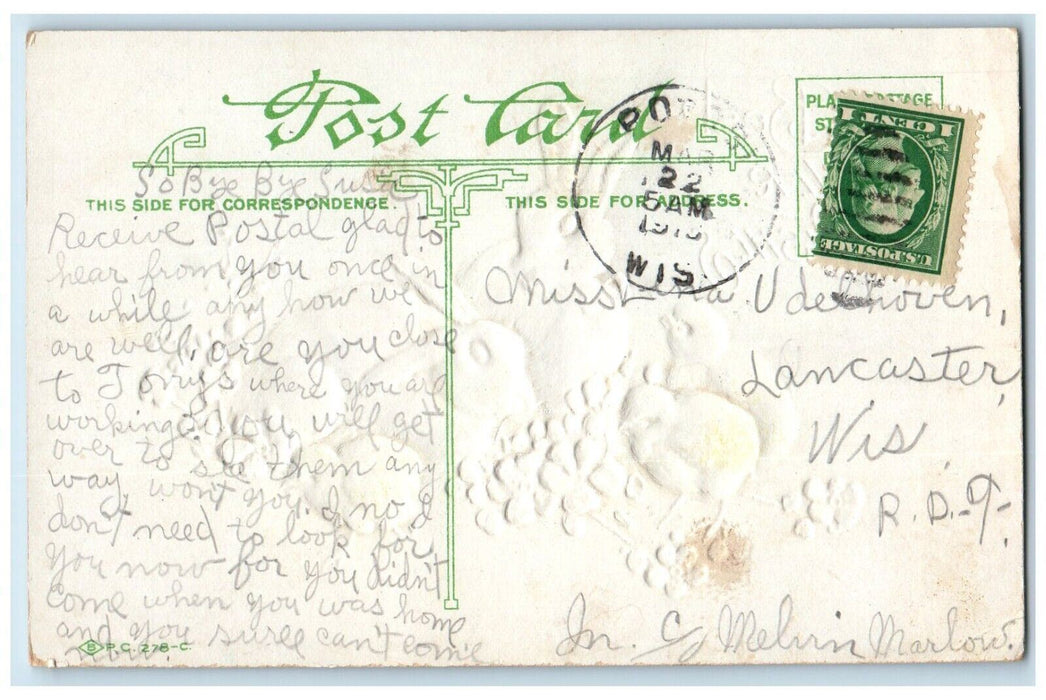 Post Card
THIS SIDE FOR CORRESPONDENCE.
THIS SIDE FOR ADDRESS.
MAR
22
5 AM
WIS.
1 CENT 1
U.S. POSTAGE
So Bye Bye
Receive Postal glad to
hear from you once in
a while any how we
are well, are you close
to where you are
working? You will get
over to see them any
way, wont you. I no I
don't need to look for
you now for you didn't
come when you was home
and you suree can't come
now.
Miss Udelhoven,
Lancaster,
Wis,
R.D.-9-
In c/o Melvin Marlow.
B P.C. 278-C.